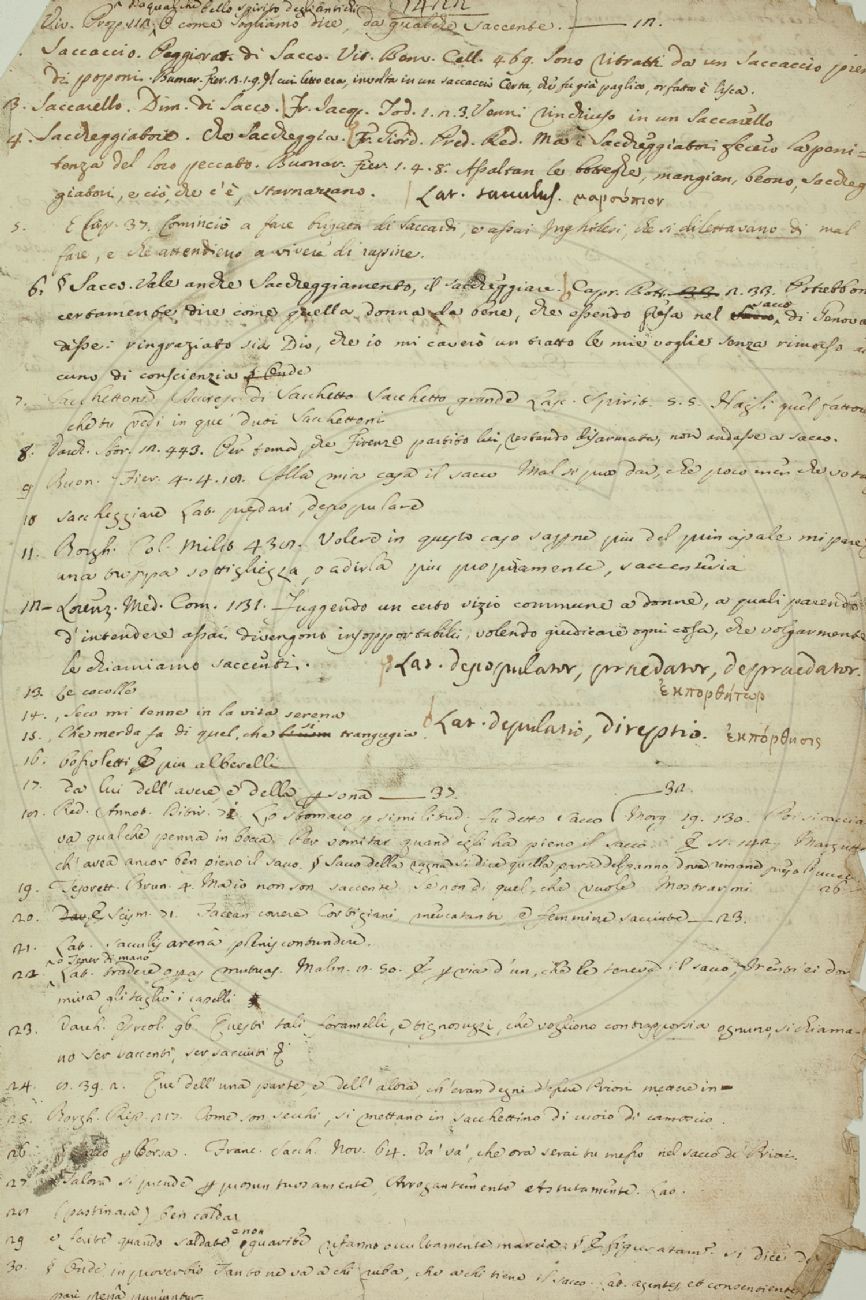 da qualche bello spirito degli antichi
Viv. Prop. 112. E come sogliamo dire, da qualche saccente. — 12.
Saccaccio. Peggiorat. di Sacco. Vit. Benv. Cell. 469. Sono ritratti da un saccaccio
di poponi. Buonar. Fier. 2. 1. 9. Il cui letto era, involta in un saccaccio Certa, che fu già paglia, or fatta è lisca.
3. Saccarello. Dim. di Sacco. Fr. Jacop. Tod. 1. 2. 3. Venni rinchiuso in un Saccarello
4. Saccheggiatore. Che Saccheggia. Fr. Giord. Pred. Red. Ma i Saccheggiatori fecero la peni=
tenza del loro peccato. Buonar. Fier. 1. 4. 8. Assaltan le botteghe, mangian, beono, saccheg
giatori, e ciò, che c'è, starnazzano. Lat. sacculus. μαρσύπιον
5. E Cap. 37. Cominciò a fare brigata di Saccardi, e assai Inghilesi, che si dilettavano di mal
fare, e che attendieno a vivere di rapine.
6. § Sacco. Vale anche Saccheggiamento, il saccheggiare. Capr. Bott. 2. 33. Potrebbon
certamente dire come quella donna da bene, che essendo presa nel sacco di Genova
disse: ringraziato sia Dio, che io mi caverò un tratto le mie voglie senza rimorso
cuno di conscienzia
7. Sacchettone Accresc. di Sacchetto Sacchetto grande Lasc. Spirit. 5. 5. Hagli quel fattor
che tu vedi in que' duoi Sacchettoni
8. Varch. Stor. 12. 443. Per tema che Firenze partito lui, restando disarmata, non andasse a sacco.
9 Buon. Fier. 4. 4. Alla mia casa il sacco Mal si può dar, che poco men che vota
10 saccheggiare Lat. prędari, depopulare
11. Borgh. Col. Milit. 432. Volere in questo caso sapne più del principale mi pare
una troppa sottigliezza, o a dirla più propiamente, saccenteria
12— Lorenz. Med. Com. 1131. Fuggendo un certo vizio commune a donne, a quali parendo
d'intendere assai divengono insopportabili, volendo giudicare ogni cosa, che volgarmente
le chiamiamo saccenti. Lat. depopulator, praedator, depraedator.
ἐκπορθήτωρ
13. Le cocolle
14. , Seco mi tenne in la vita serena
15. , Che merda fa di quel, che si trangugia Lat. depulatio, direptio. ἐκπόρθησις
16. bossoletti, E più alberelli
17. da lui dell'avere, e della psona — 37.
Red. Annot. Ditir. Lo stomaco p similitud. fu detto Sacco Morg. 19. 130. Poi si caccia
va qualche penna in bocca. Per vomitar quand'egli ha pieno il sacco. Margutte
ch'avea ancor ben pieno il sacco. § Sacco della ragna si dice quella parte del panno dove rimane preso l'uccel
19. Teprett. Brun. 4. Ma io non son saccente Se non di quel, che vuole Mostrarmi 26
20. Facean correre Cortigiani mercatante e femmine saccente — 23.
21. Lat. sacculis arenâ plenis contundere.
o Tener di mano
22. Lat. tradere operas mutuas. Malm. 2. 50. E p via d'un, che le teneva il sacco, Mentr'ei dor
miva gli tagliò i capelli
23. Varch. Ercol. 96. Questi tali foramelli, e tignosuzzi, che vogliono contrapporsi a ognuno, si chiama-
no ser saccenti, ser sacciuti E
24. 39. 2. Que' dell'una parte, e dell'altra ch'eran degni d'esser Priori mettere in—
25. Borgh. Rip. 217. Come son secchi, si mettano in sacchettino di cuoio di camoscio.
26. § Sacco p Borsa. Franc. Sacch. Nov. 64. Va' va', che ora serai tu messo nel sacco de' Priori.
27. Talora si prende p prosuntuosamente, Arrogantemente, e Astutamente. Lat.
(pastinaca) ben calda
29 e ferite quando saldate e non guarite rifanno occultamente marcia: § E figuratamte. si dice
30. § Onde in proverbio Tanto ne va a chi ruba, che a chi tiene il sacco. Lat. agentes, et consentientes
pari pęna puniuntur.